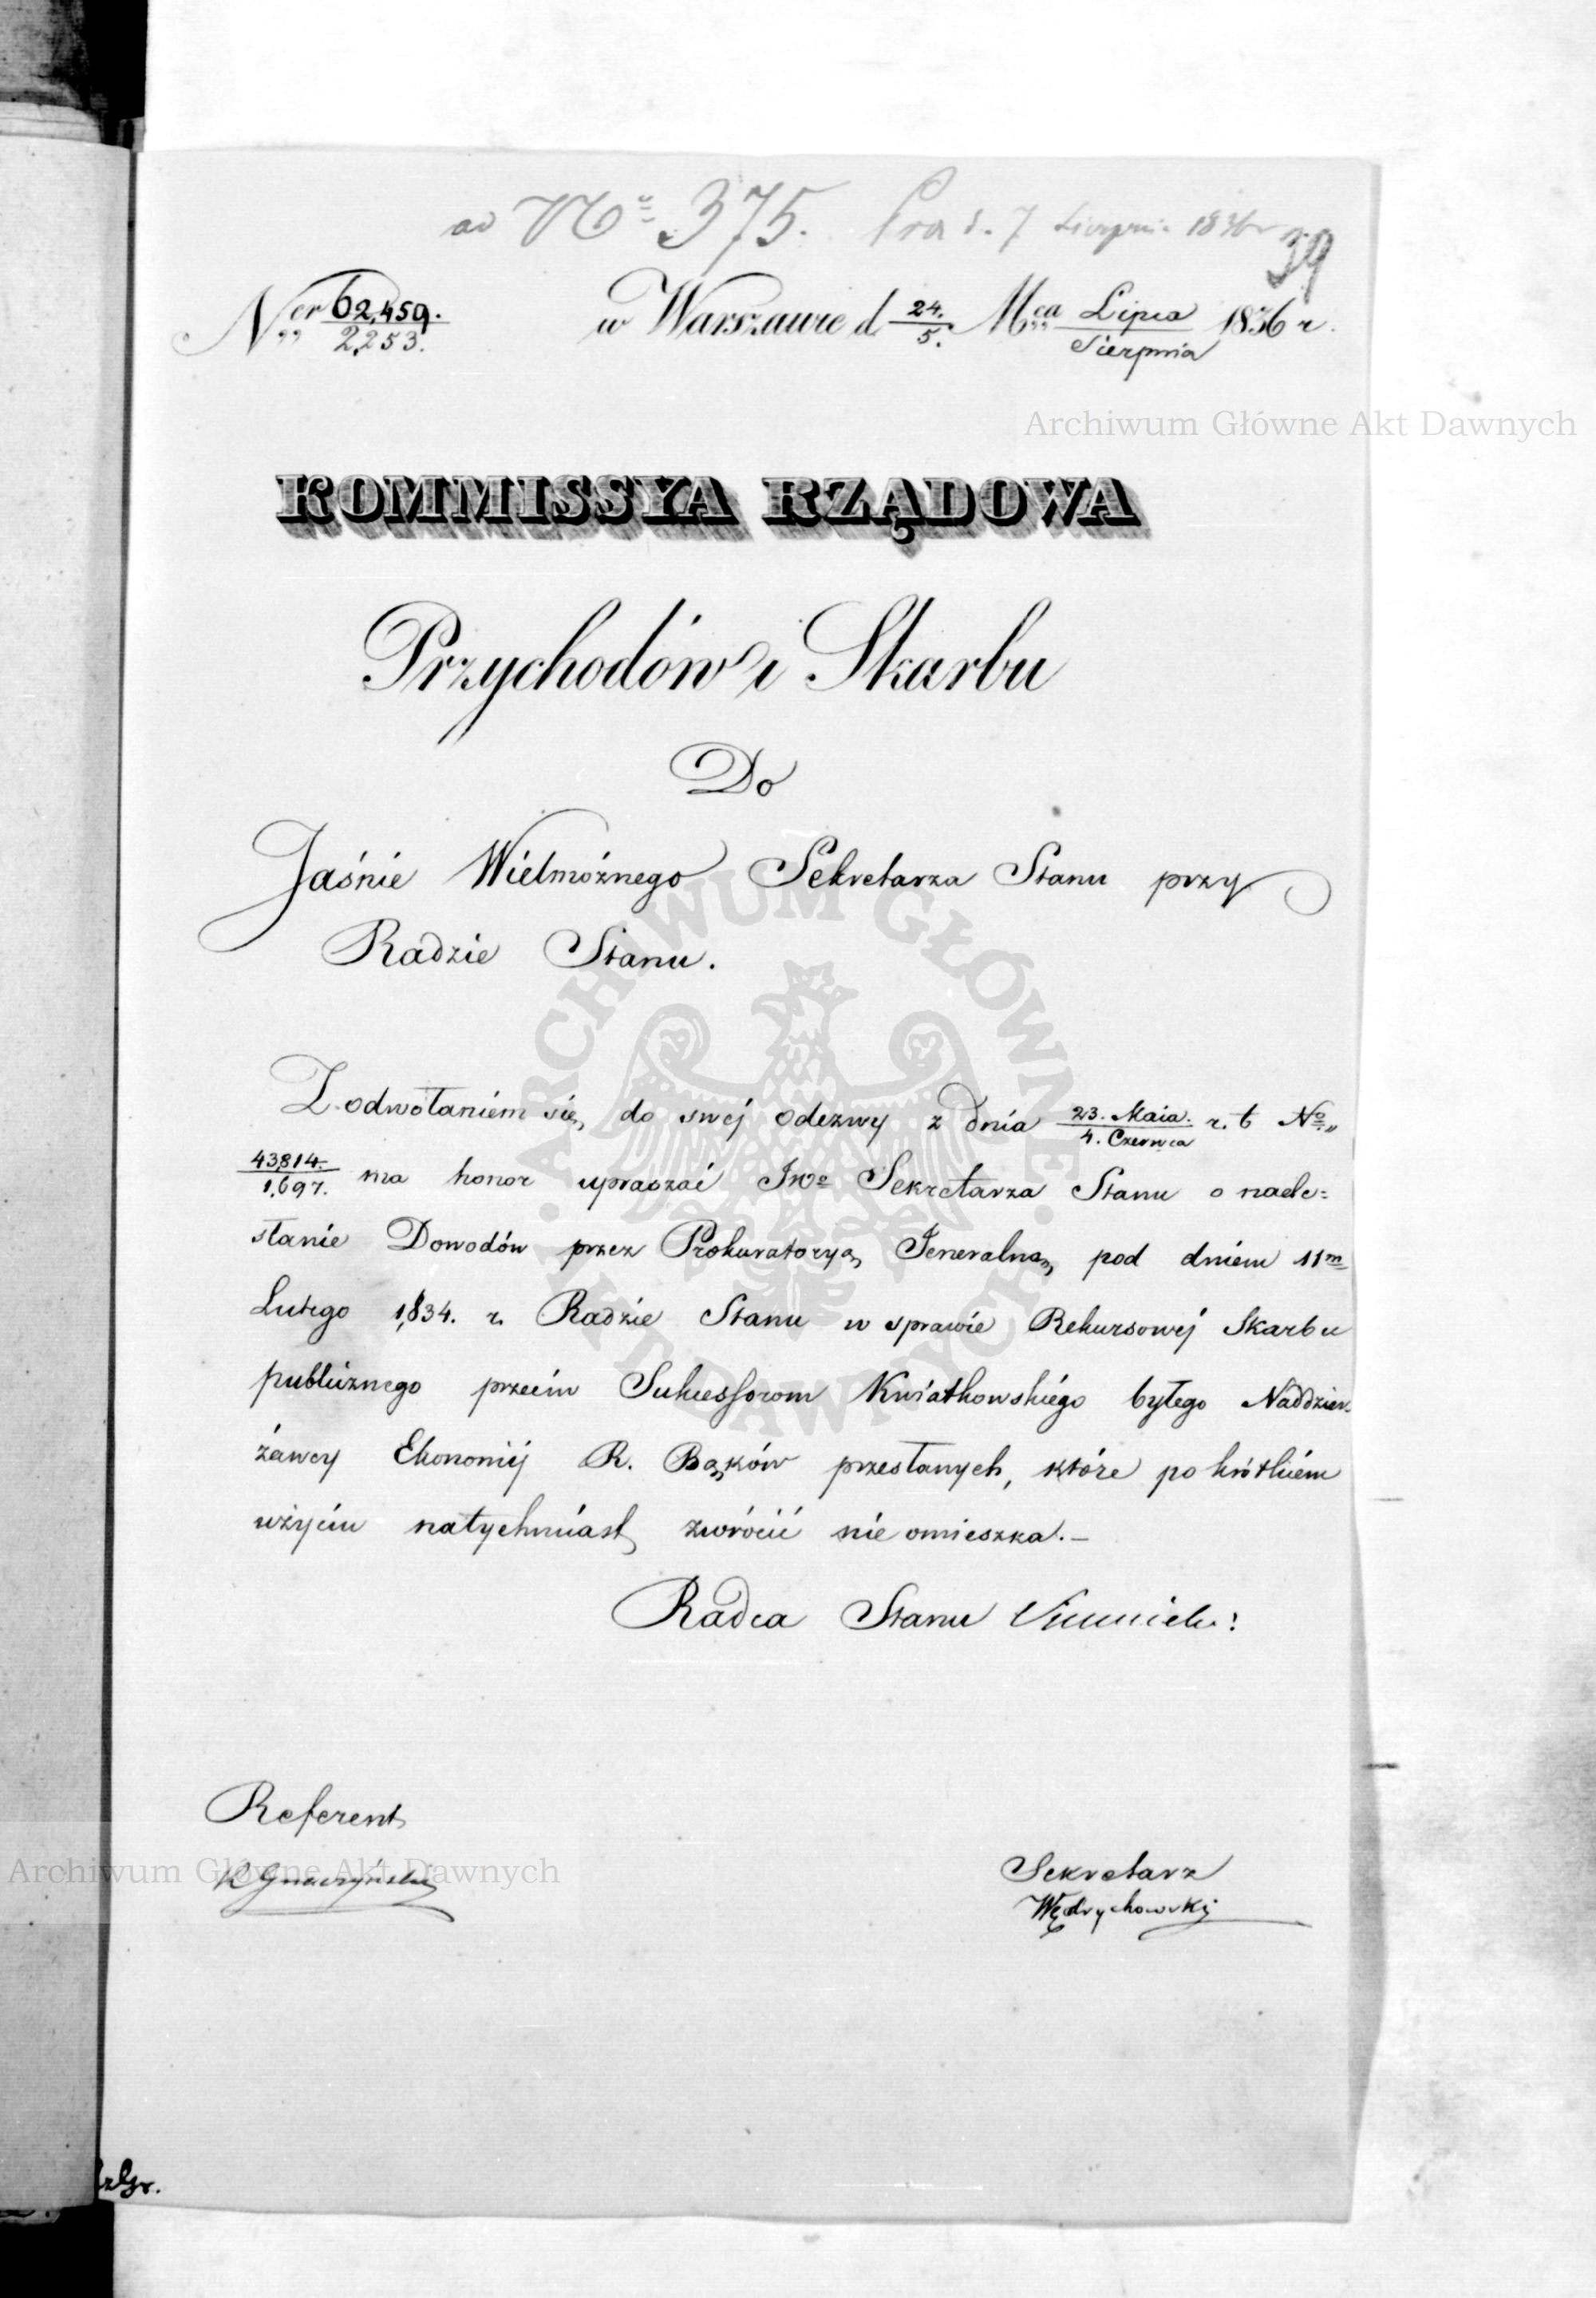 ad No 375. Pra d. 7 Sierpnia 1836 r
39
Ner 62,459./2,253. w Warszawie d 24./5. Mca Lipca/Sierpnia 1836 r.
Archiwum Główne Akt Dawnych
KOMMISSYA RZĄDOWA
Przychodów i Skarbu
Do
Jaśnie Wielmożnego Sekretarza Stanu przy
Radzie Stanu.
ARCHIWUM GŁÓWNE AKT DAWNYCH
Z odwołaniem się do swéj odezwy z dnia 23. Maia./4. Czerwca r. b No
43814./1,697. ma honor upraszać JWo Sekretarza Stanu o nade=
słanie Dowodów przez Prokuratoryą Jeneralną pod dniem 11m
Lutego 1,834. r. Radzie Stanu w sprawie Rekursowéj Skarbu
publicznego przeciw Sukcessorom Kwiatkowskiégo byłego Naddzier-
żawcy Ekonomij R. Bąków przesłanych, które po krótkiém
użyciu natychmiast zwrócić nie omieszka.–
Radca Stanu
Referent
Archiwum Główne Akt Dawnych
Sekretarz
Wędrychowski